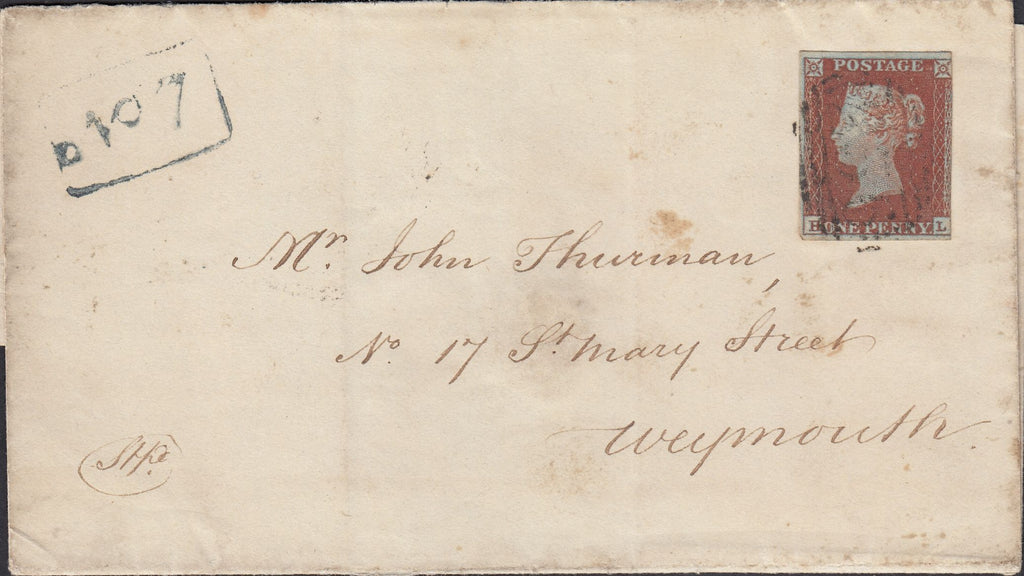 D NO 7
POSTAGE
H ONE PENNY L
Mr. John Thurman,
No 17 St. Mary Street
Weymouth.
Stpd